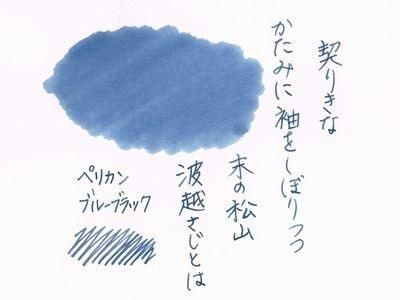 契りきな
かたみに袖をしぼりつつ
末の松山
波越さじとは
ペリカン
ブルーブラック